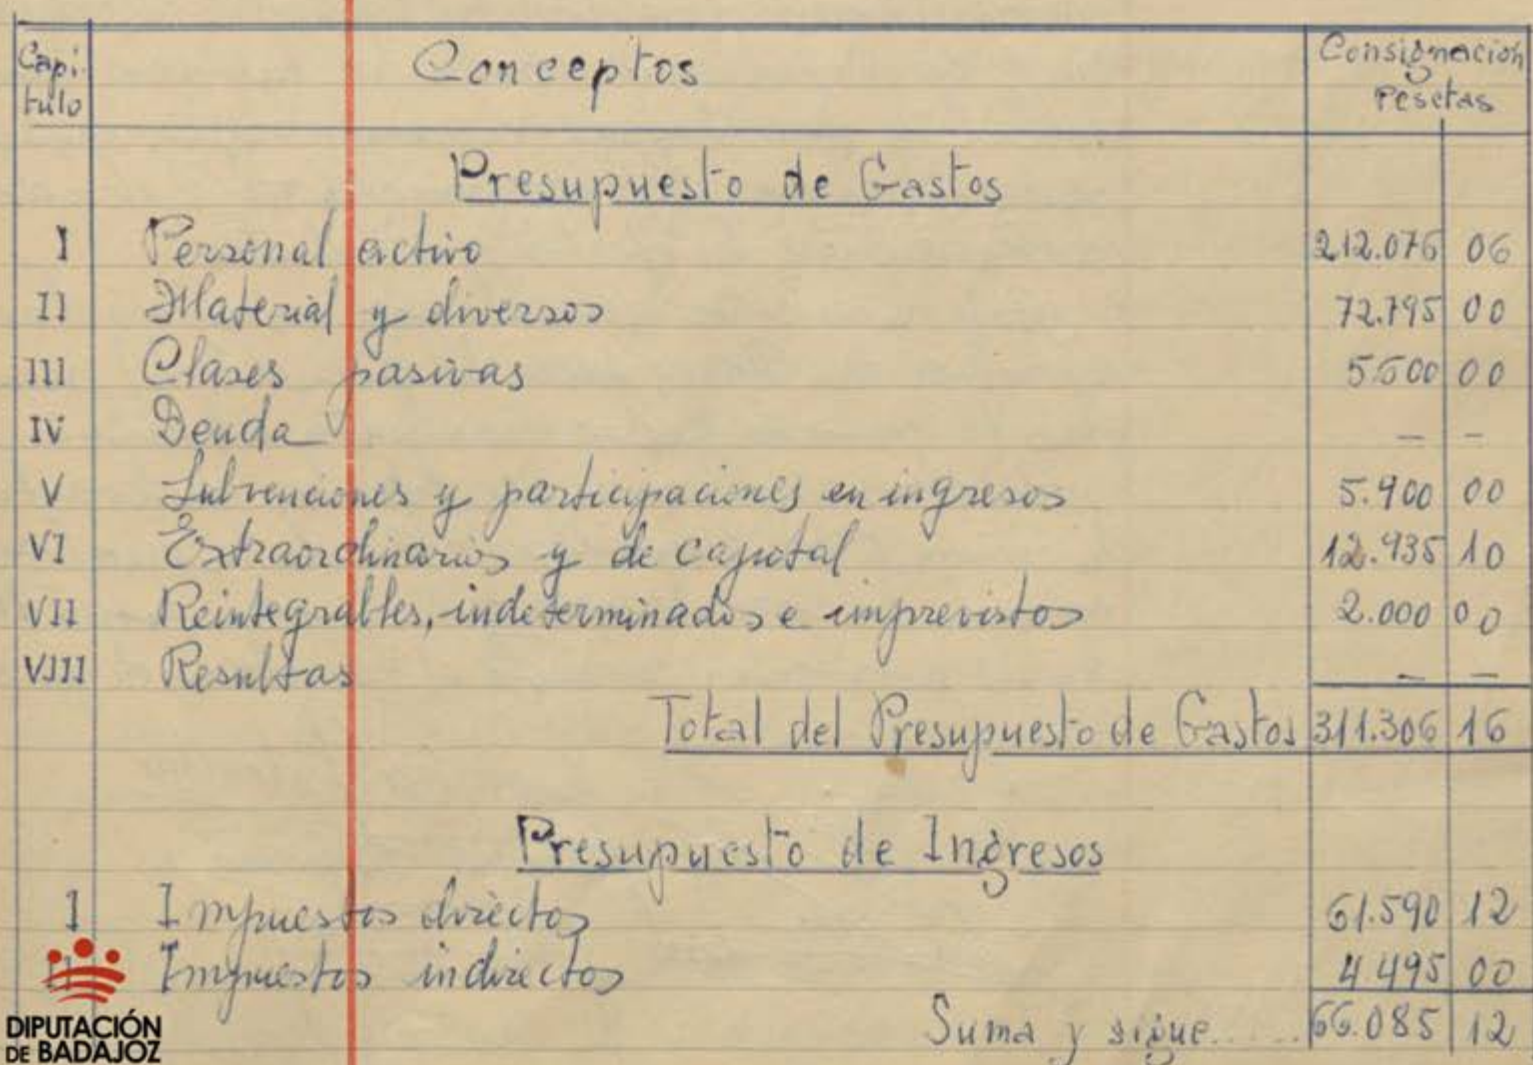 Capi- Conceptos Consignación
tulo Pesetas
Presupuesto de Gastos
I Personal activo 212.076 06
II Material y diversos 72.795 00
III Clases pasivas 5.600 00
IV Deuda — —
V Subvenciones y participaciones en ingresos 5.900 00
VI Extraordinarios y de capital 12.935 10
VII Reintegrables, indeterminados e imprevistos 2.000 00
VIII Resultas — —
Total del Presupuesto de Gastos 311.306 16
Presupuesto de Ingresos
I Impuestos directos 61.590 12
II Impuestos indirectos 4.495 00
Suma y sigue...... 66.085 12
DIPUTACIÓN
DE BADAJOZ